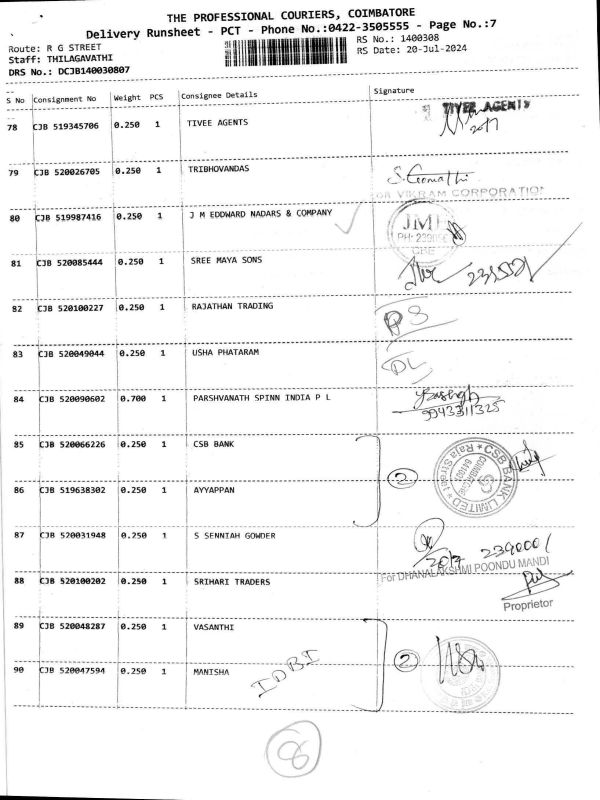 THE PROFESSIONAL COURIERS, COIMBATORE
Delivery Runsheet - PCT - Phone No.:0422-3505555 - Page No.:7
Route: R G STREET RS No.: 1400308
Staff: THILAGAVATHI RS Date: 20-Jul-2024
DRS No.: DCJB140030807
S No Consignment No Weight PCS Consignee Details Signature
78 CJB 519345706 0.250 1 TIVEE AGENTS TIVEE AGENTS
20/7
79 CJB 520026705 0.250 1 TRIBHOVANDAS S. Gomathi
VIKRAM CORPORATION
80 CJB 519987416 0.250 1 J M EDDWARD NADARS & COMPANY
81 CJB 520085444 0.250 1 SREE MAYA SONS
82 CJB 520100227 0.250 1 RAJATHAN TRADING
83 CJB 520049044 0.250 1 USHA PHATARAM DL
84 CJB 520090602 0.700 1 PARSHVANATH SPINN INDIA P L
9943311325
85 CJB 520066226 0.250 1 CSB BANK
CSB BANK LIMITED * Raja Street *
COIMBATORE
641001
2
86 CJB 519638302 0.250 1 AYYAPPAN
87 CJB 520031948 0.250 1 S SENNIAH GOWDER
20/7 2390001
For DHANALAKSHMI POONDU MANDI
88 CJB 520100202 0.250 1 SRIHARI TRADERS
Proprietor
89 CJB 520048287 0.250 1 VASANTHI
2
90 CJB 520047594 0.250 1 MANISHA IDBI
8